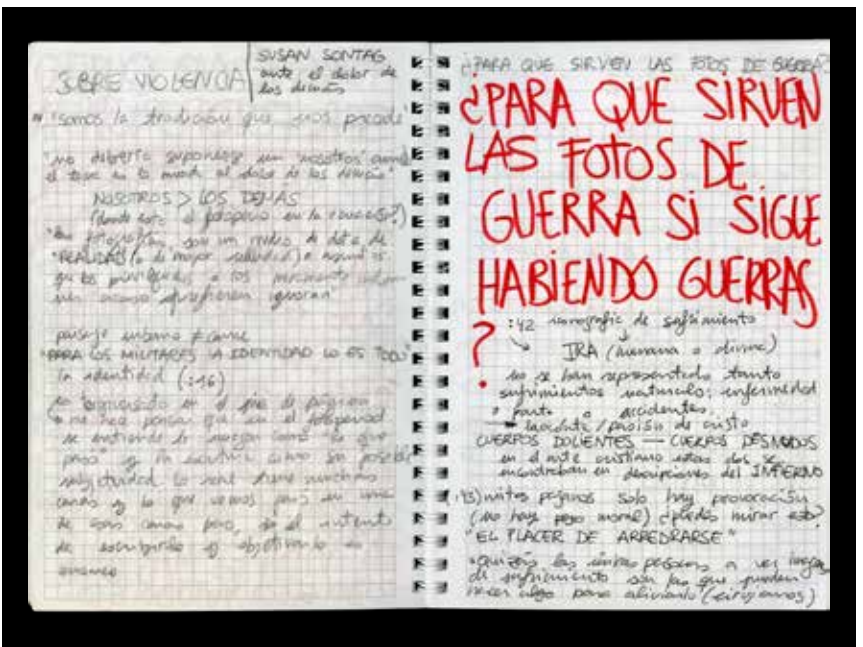 SOBRE VIOLENCIA
SUSAN SONTAG
ante el dolor de
los demás
"somos la tradición que nos precede"
"no debería suponerse un "nosotros" cuando
el tema es la mirada al dolor de los demás"
NOSOTROS > LOS DEMÁS
(donde está el en la ?)
"las fotografías son un medio de dotar de
"REALIDAD" (o de mayor realidad) a aquellos
que los privilegiados o los
acaso prefieren ignorar"
paisaje urbano ≠ carne
"PARA LOS MILITARES LA IDENTIDAD LO ES TODO"
la identidad (:16)
en el pie de página
me hace pensar que en el
se entiende la imagen como "lo que
pasó" y la escritura como su posible
subjetividad. lo real tiene muchas
caras y lo que vemos pasó en una
de esas caras pero, en el intento
de escribirlo y objetivarlo
¿PARA QUE SIRVEN LAS FOTOS DE GUERRA?
¿PARA QUE SIRVEN
LAS FOTOS DE
GUERRA SI SIGUE
HABIENDO GUERRAS
?
:42 iconografía de sufrimiento
IRA (humana o divina)
no se han representado tanto
sufrimientos naturales: enfermedad
parto o accidentes.
laocoonte / pasión de cristo
CUERPOS DOLIENTES — CUERPOS DESNUDOS
en el arte cristiano estos dos se
encontraban en descripciones del INFIERNO
:43) mitos paganos solo hay provocación
(no hay peso moral) ¿puedes mirar esto?
"EL PLACER DE ARREDRARSE"
"quizás las únicas personas a ver imágenes
de sufrimiento son las que pueden
hacer algo para aliviarlo (cirujanos)